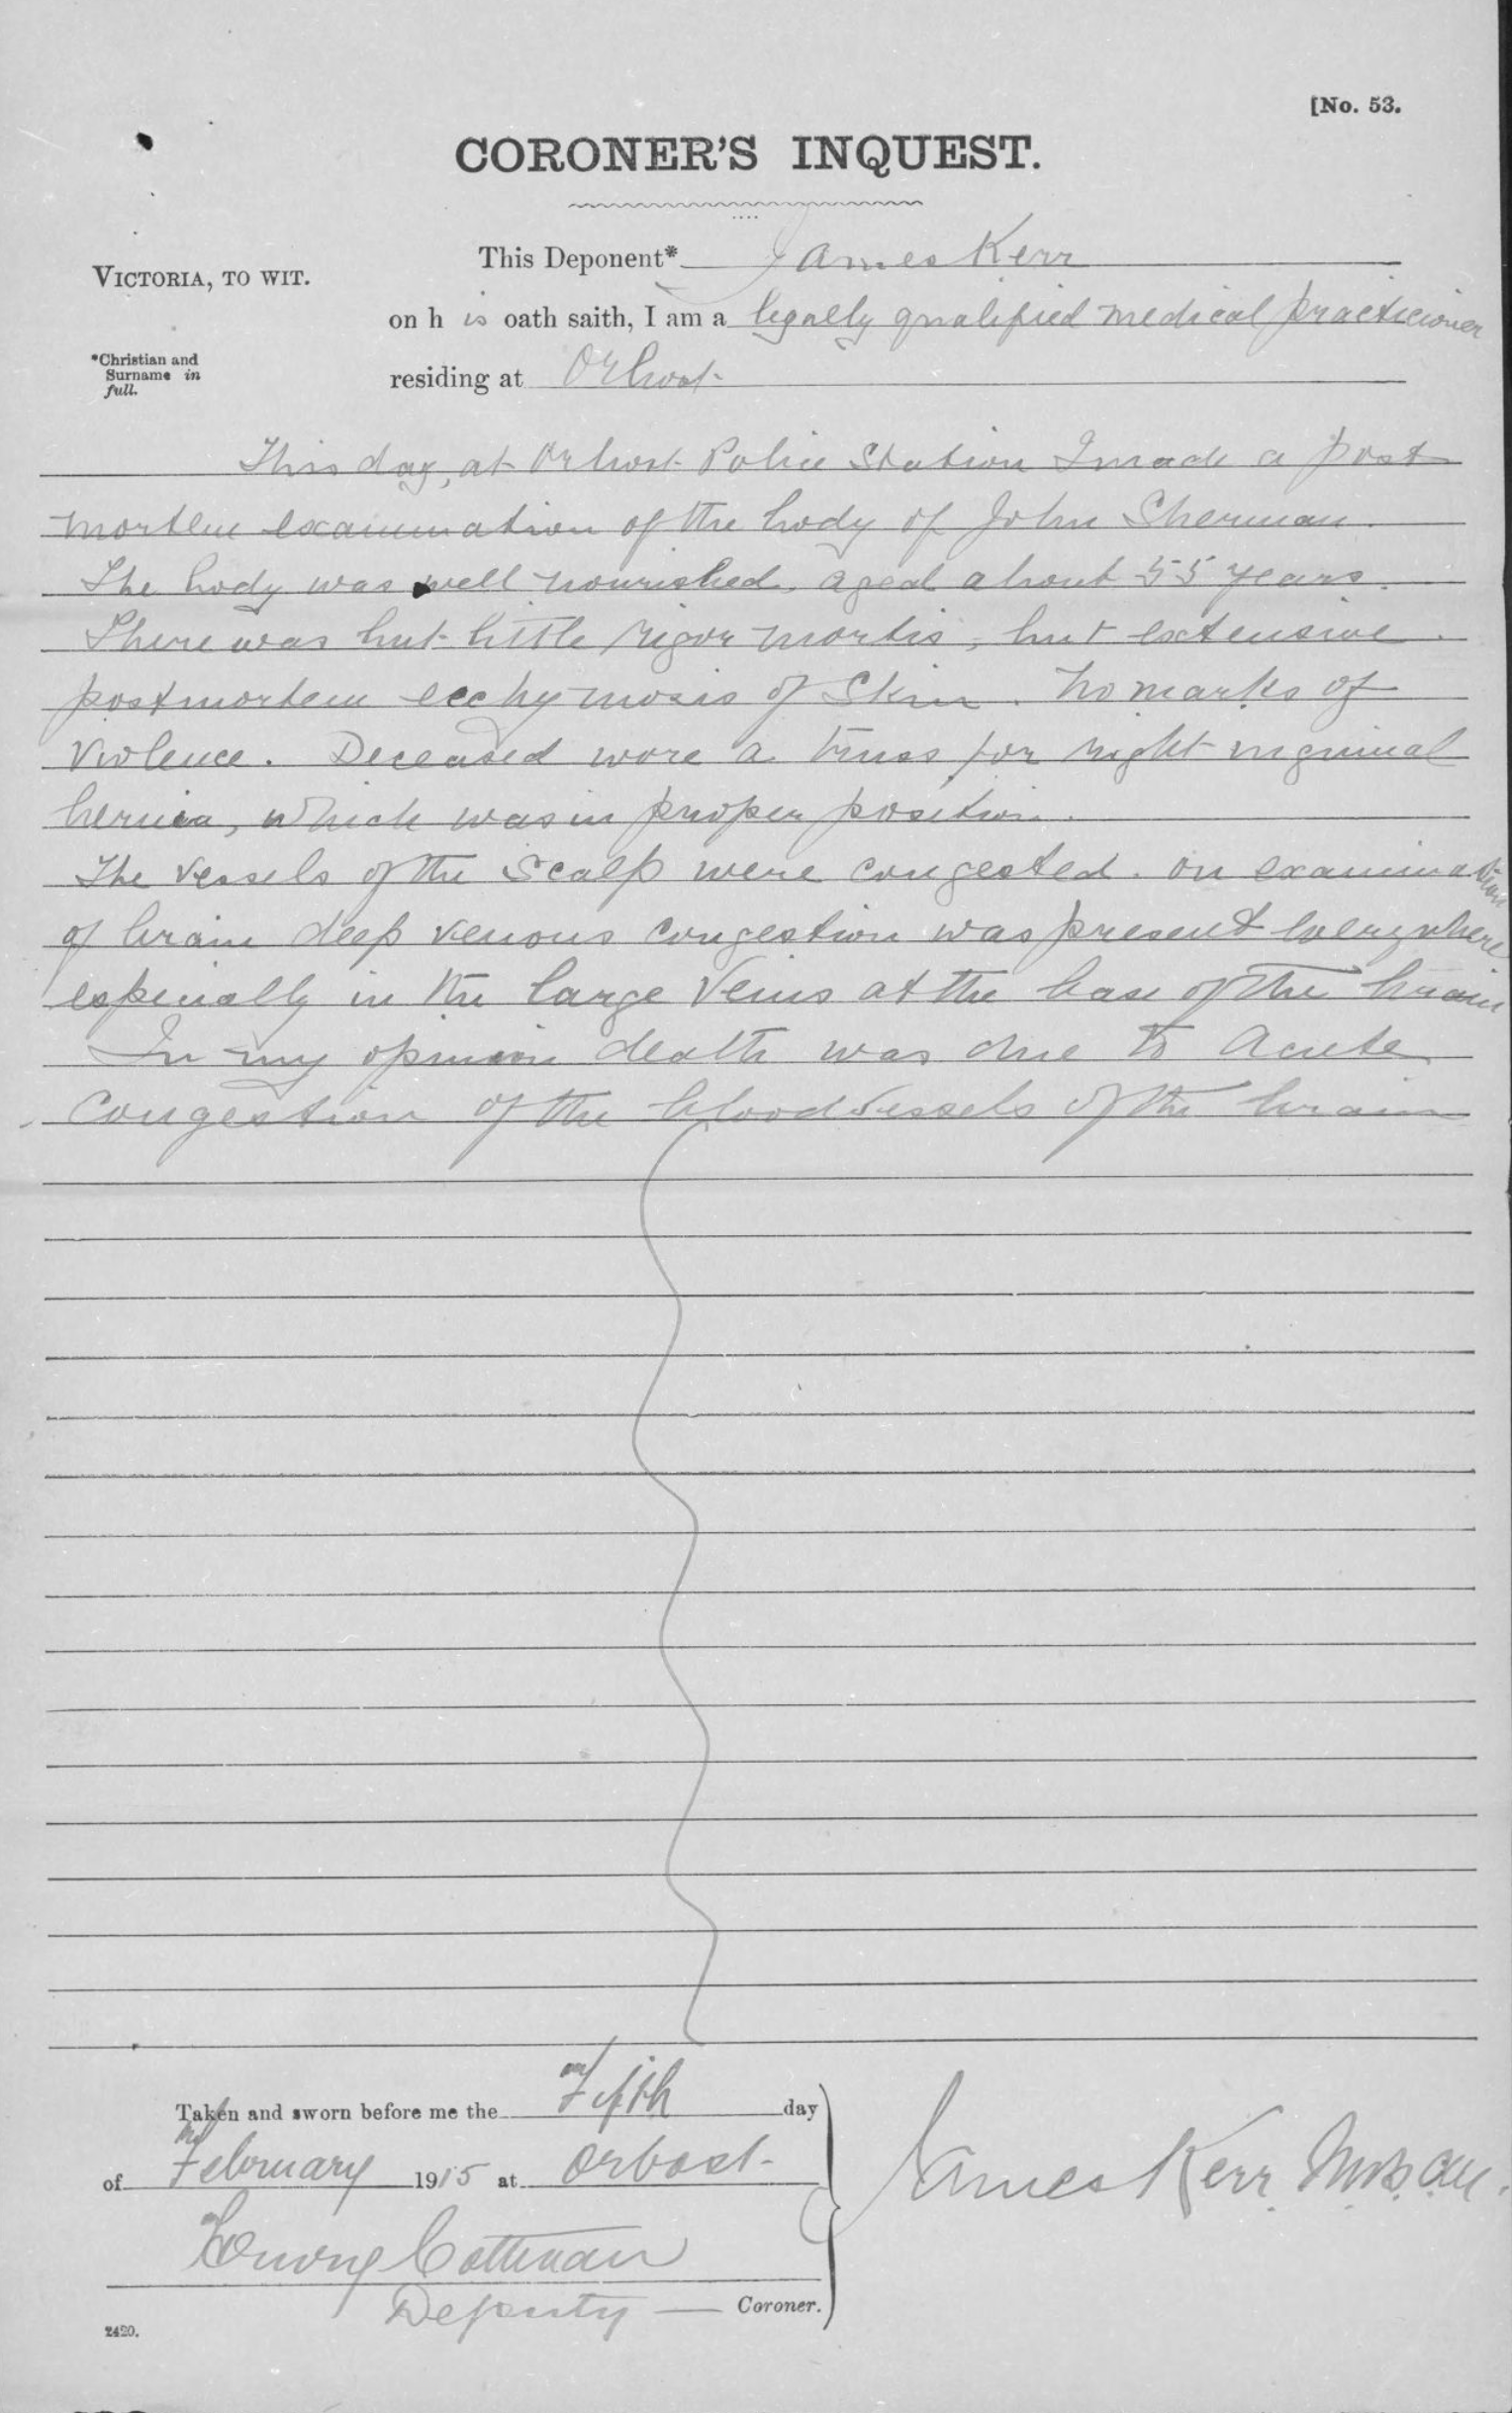 [No. 53.
CORONER'S INQUEST.
This Deponent* James Kerr
VICTORIA, TO WIT.
on h is oath saith, I am a legally qualified medical practicioner
*Christian and
Surname in
full.
residing at Orbost
This day, at Orbost Police Station I made a post
mortem examination of the body of John Sherman.
The body was well nourished, aged about 55 years.
There was but little rigor mortis, but extensive
postmortem ecchymosis of Skin. No marks of
Violence. Deceased wore a truss for right inguinal
hernia, which was in proper position.
The vessels of the Scalp were congested. On examination
of brain deep venous congestion was present everywhere
especially in the large Veins at the base of the brain
In my opinion death was due to Acute
Congestion of the bloodvessels of the brain
Taken and sworn before me the Fifth day
of February 1915 at Orbost
James Kerr M.B.
Deputy — Coroner.
2420.